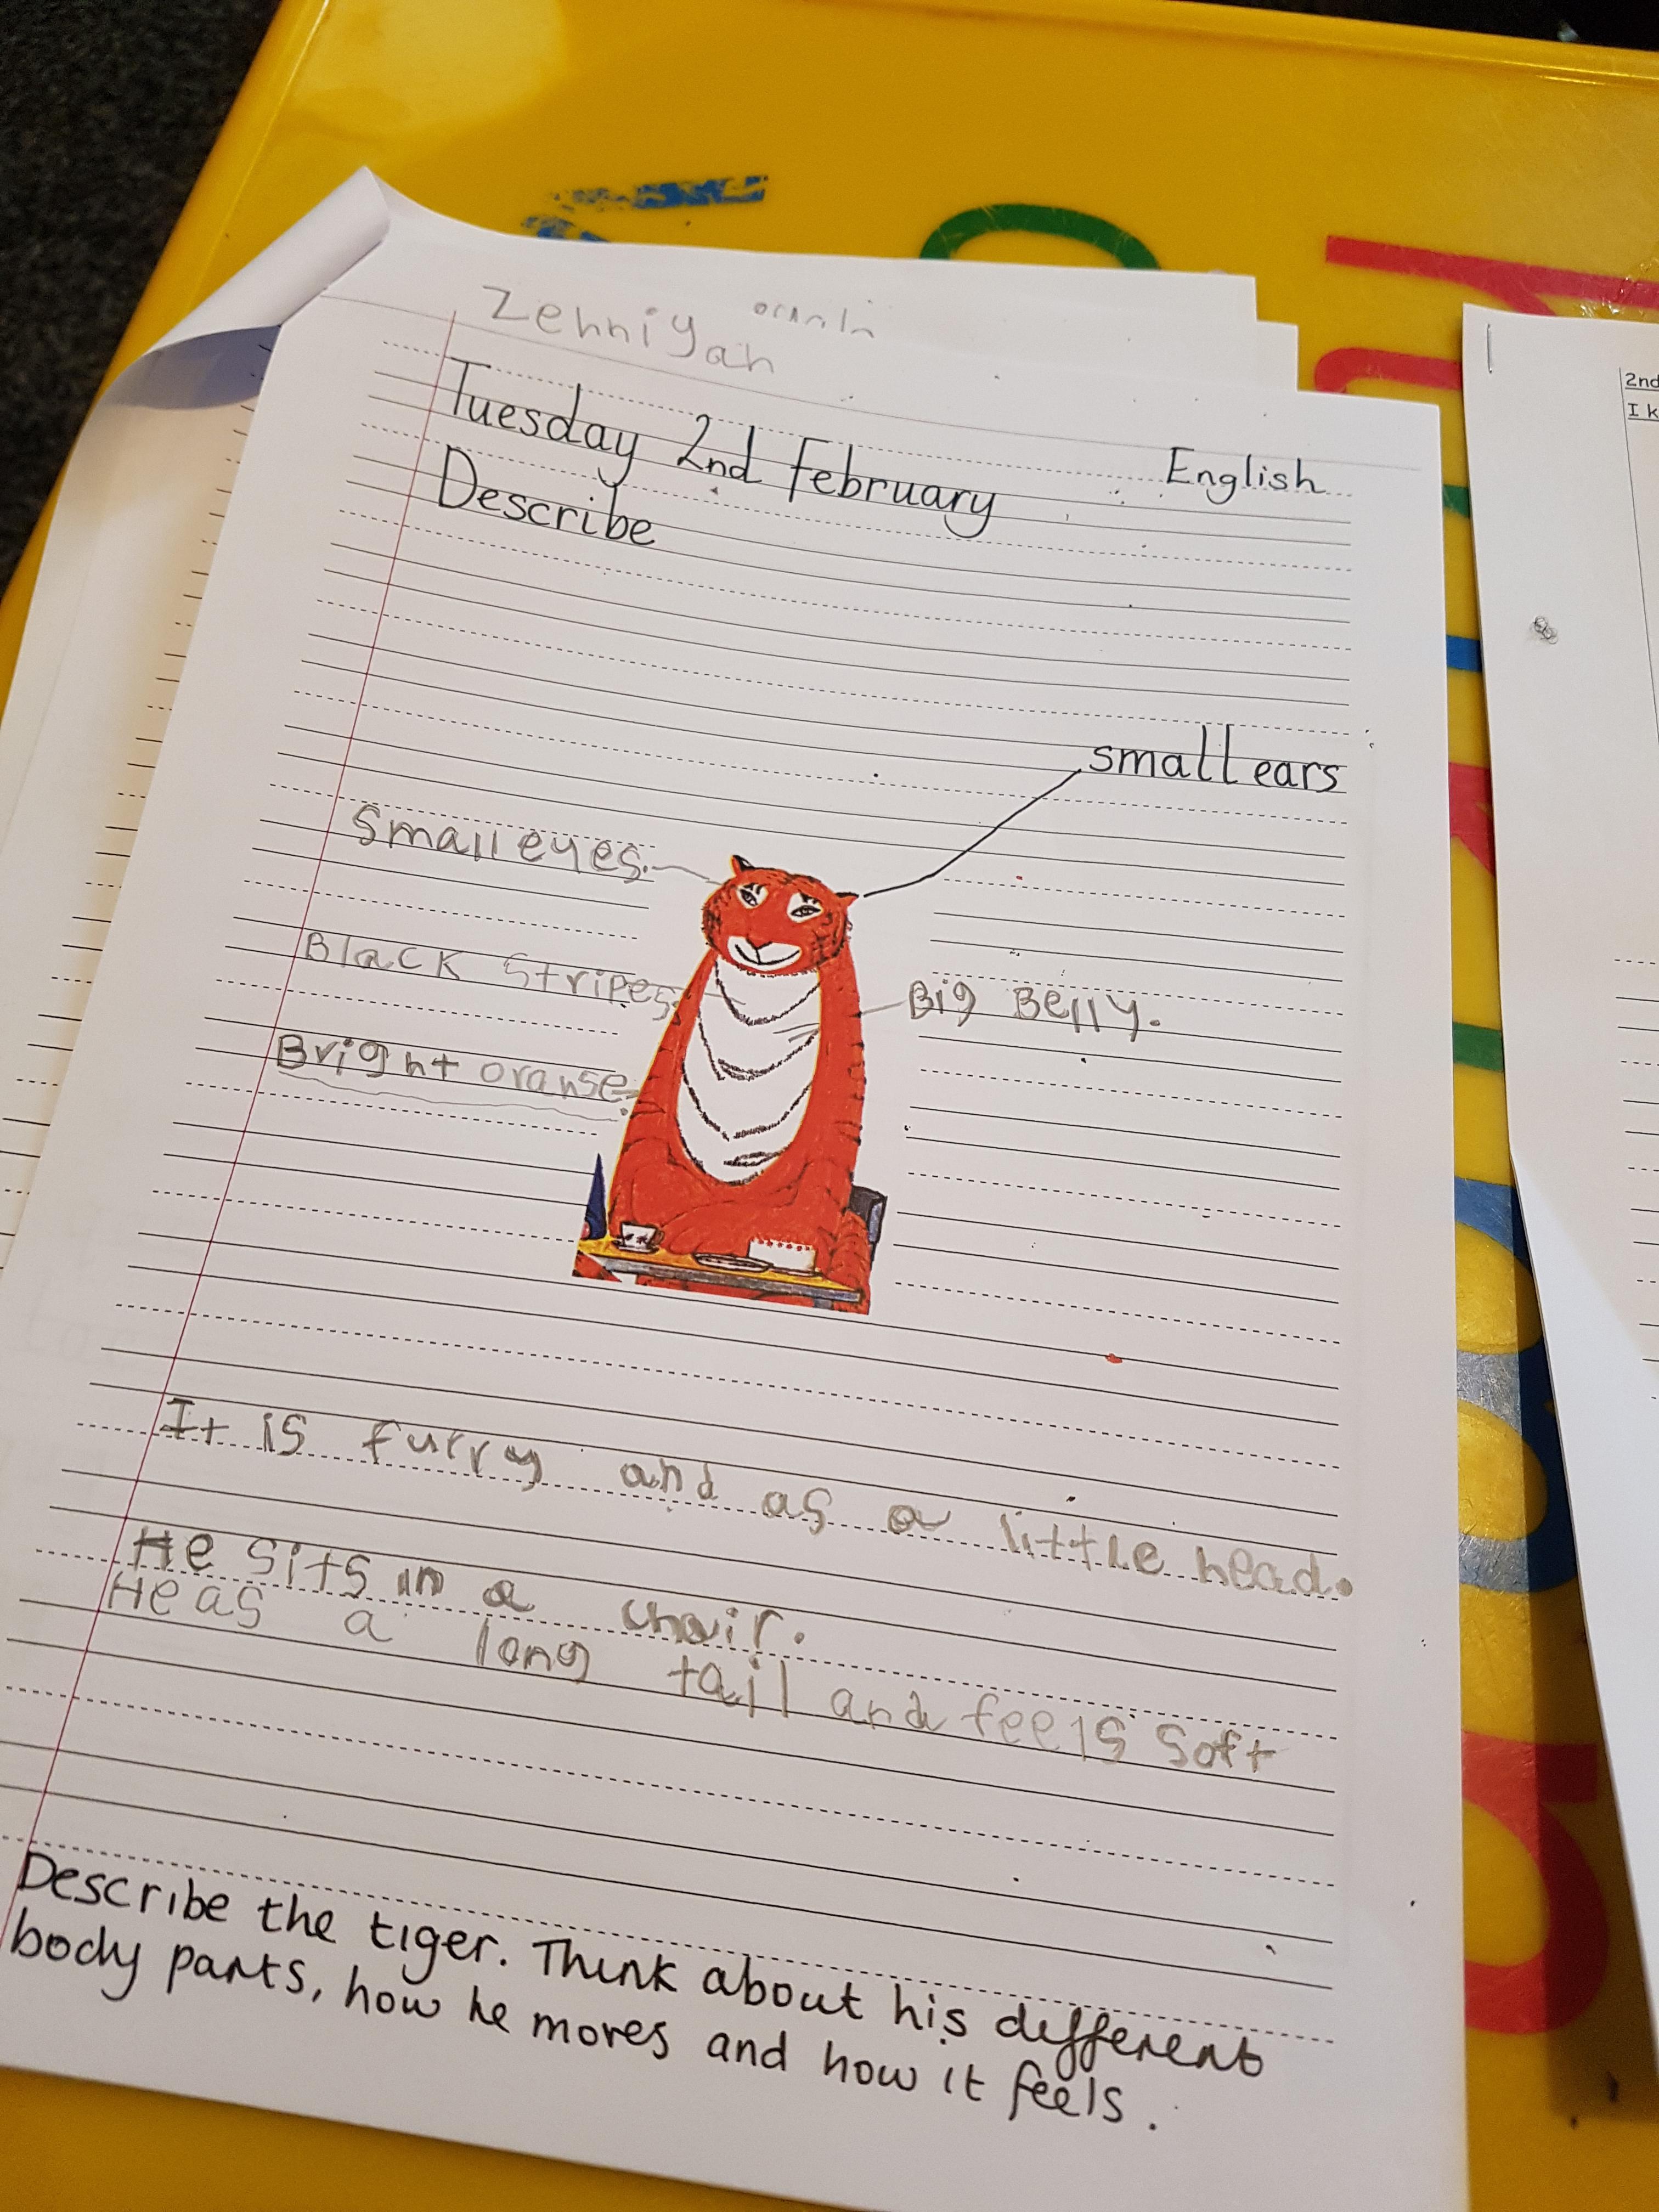 Zenniyah
Tuesday 2nd February English
Describe
small ears
Small eyes.
Black Stripes.
Big Belly.
Bright oranse.
It is furry and as a little head.
He sits in a chair.
He as a long tail and feels soft
Describe the tiger. Think about his different
body parts, how he moves and how it feels.
2nd
I k